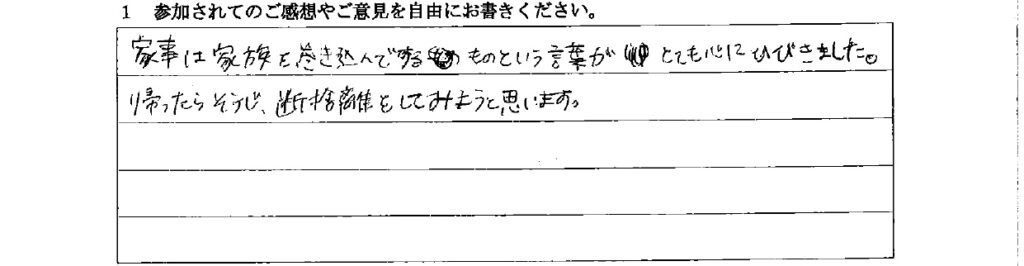 1 参加されてのご感想やご意見を自由にお書きください。
家事は家族を巻き込んでするものという言葉がとても心にひびきました。
帰ったらそうじ、断捨離をしてみようと思います。